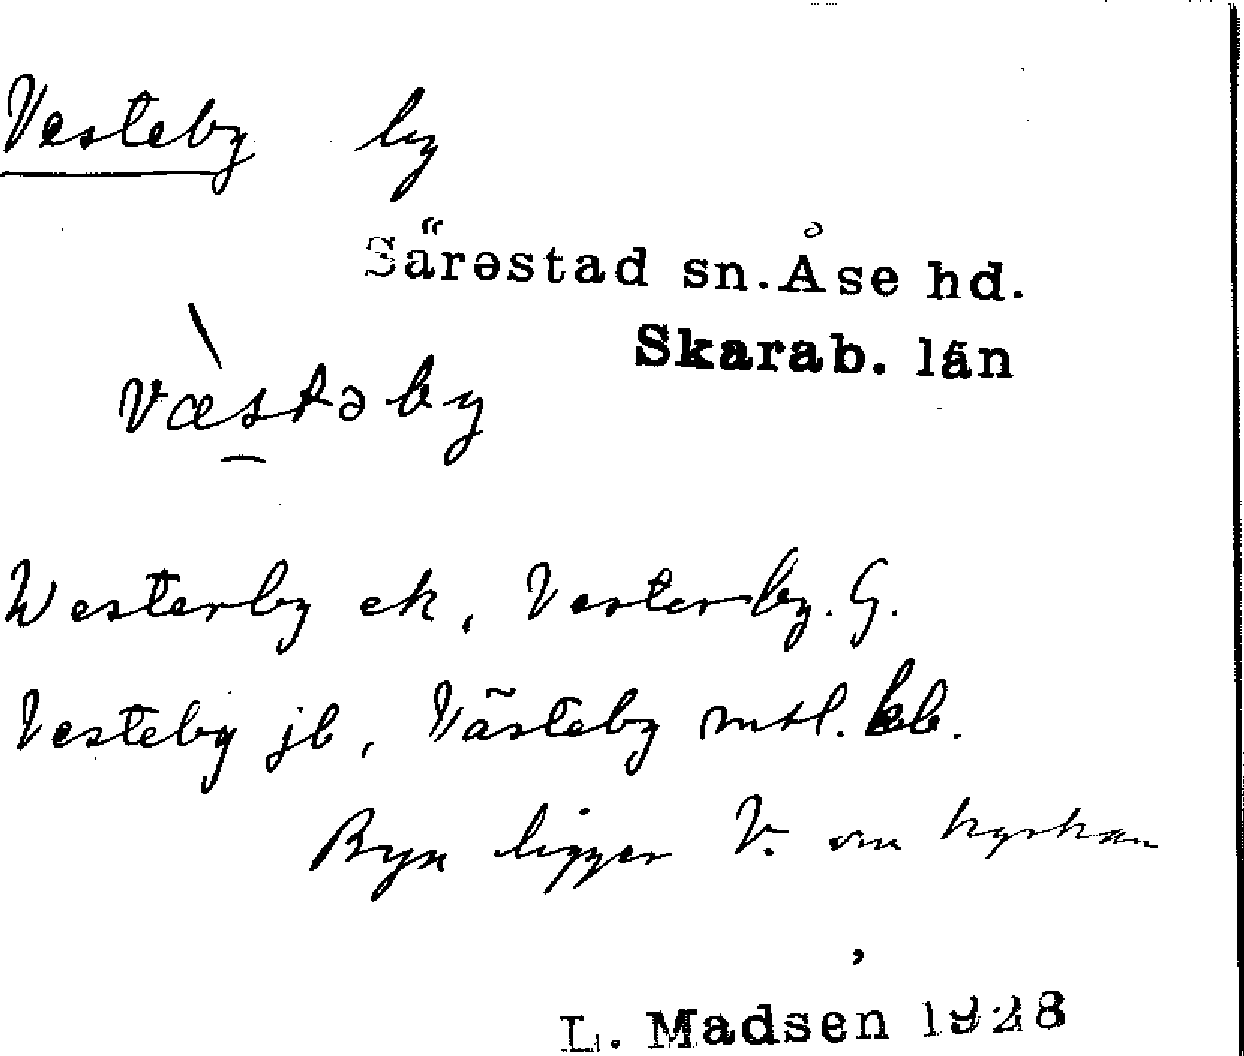 Vesteby by
Särestad sn. Åse hd.
Skarab. län
væstəby
Westerby ek, Vesterby. G.
Vesteby jb, Västeby mtl. kb.
Byn ligger V. om kyrkan
L. Madsen 1928